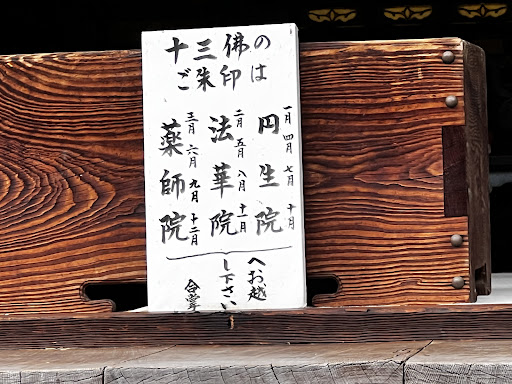 十三佛の
ご朱印は
一月 四月 七月 十月
円生院
二月 五月 八月 十一月
法華院
三月 六月 九月 十二月
薬師院
へお越
し下さい
合掌